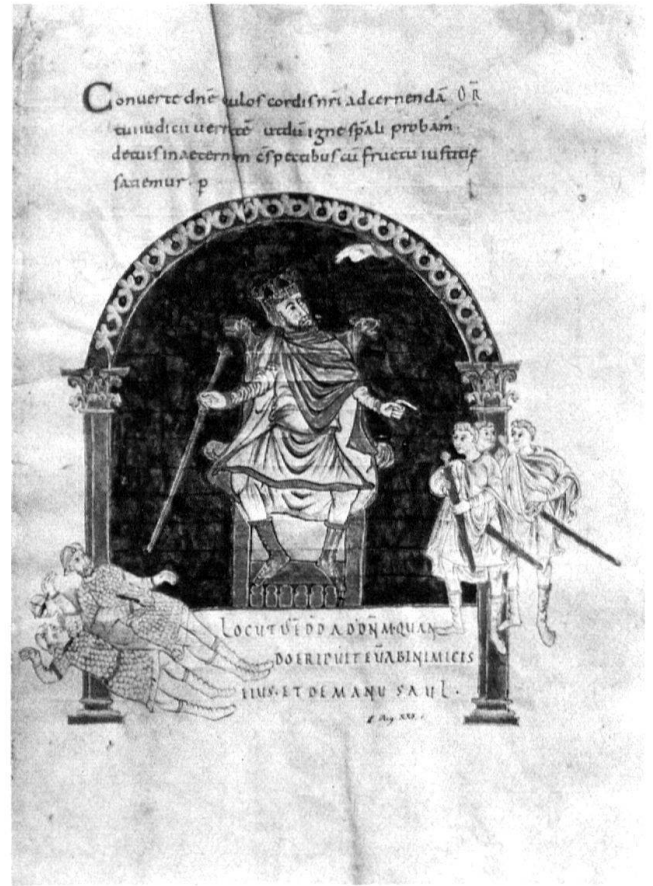 Conuerte dnē oculos cordis nr̄i ad cernendā OR̄
tui iudicii ueritatē ut dū igne sp̄ali probam̄
in aeternum cū fructu iustitię
sanemur · p
LOCUTUS Ē D̄D AD DN̄M · QUAN
DO ERIPUIT EŪ AB INIMICIS
EIUS · ET DE MANU SAUL ·